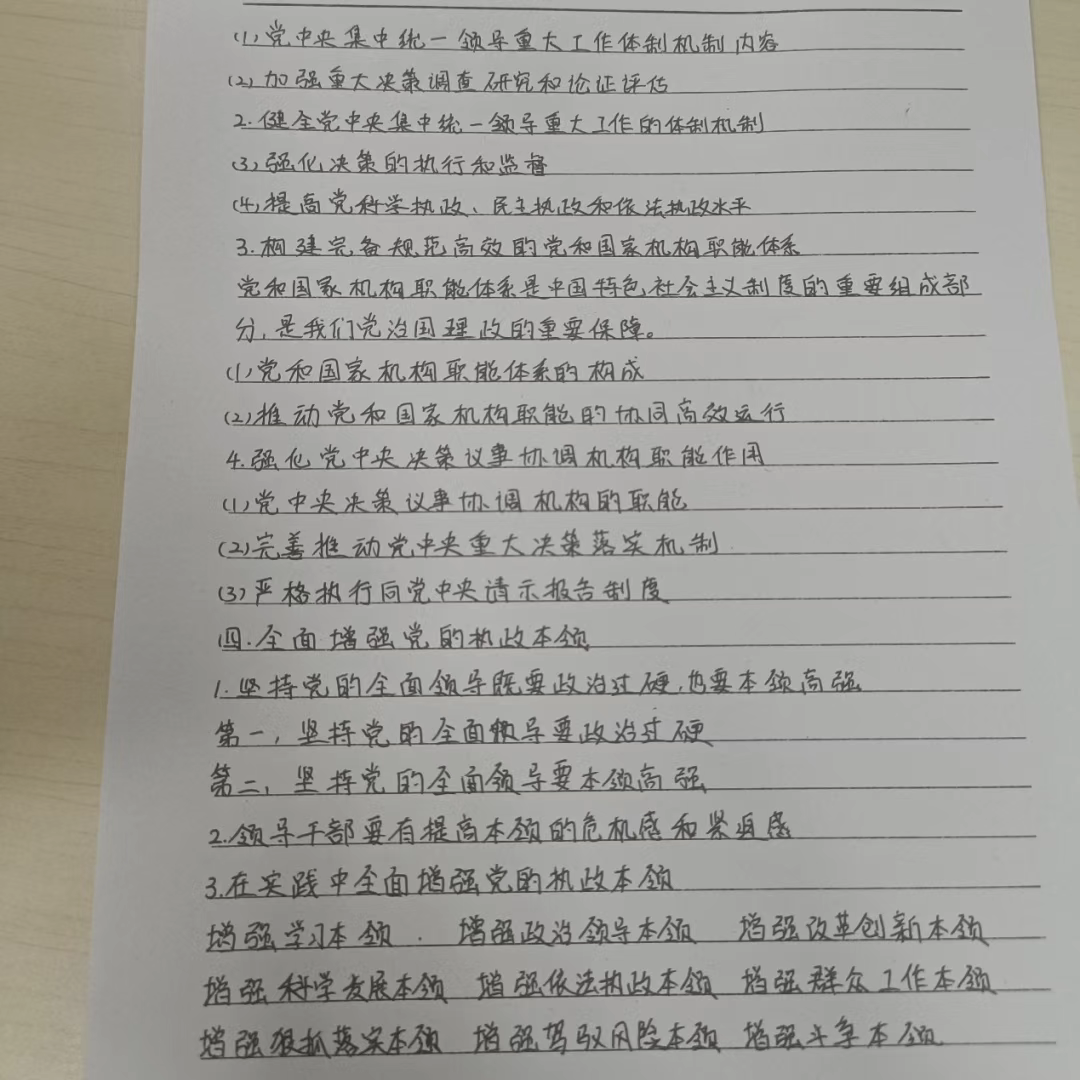 (1)党中央集中统一领导重大工作体制机制内容
(2)加强重大决策调查研究和论证评估
2.健全党中央集中统一领导重大工作的体制机制
(3)强化决策的执行和监督
(4)提高党科学执政、民主执政和依法执政水平
3.构建完备规范高效的党和国家机构职能体系
党和国家机构职能体系是中国特色社会主义制度的重要组成部
分,是我们党治国理政的重要保障。
(1)党和国家机构职能体系的构成
(2)推动党和国家机构职能的协同高效运行
4.强化党中央决策议事协调机构职能作用
(1)党中央决策议事协调机构的职能
(2)完善推动党中央重大决策落实机制
(3)严格执行向党中央请示报告制度
四.全面增强党的执政本领
1.坚持党的全面领导既要政治过硬,也要本领高强
第一,坚持党的全面领导要政治过硬
第二,坚持党的全面领导要本领高强
2.领导干部要有提高本领的危机感和紧迫感
3.在实践中全面增强党的执政本领
增强学习本领. 增强政治领导本领 增强改革创新本领
增强科学发展本领 增强依法执政本领 增强群众工作本领
增强狠抓落实本领 增强驾驭风险本领 增强斗争本领